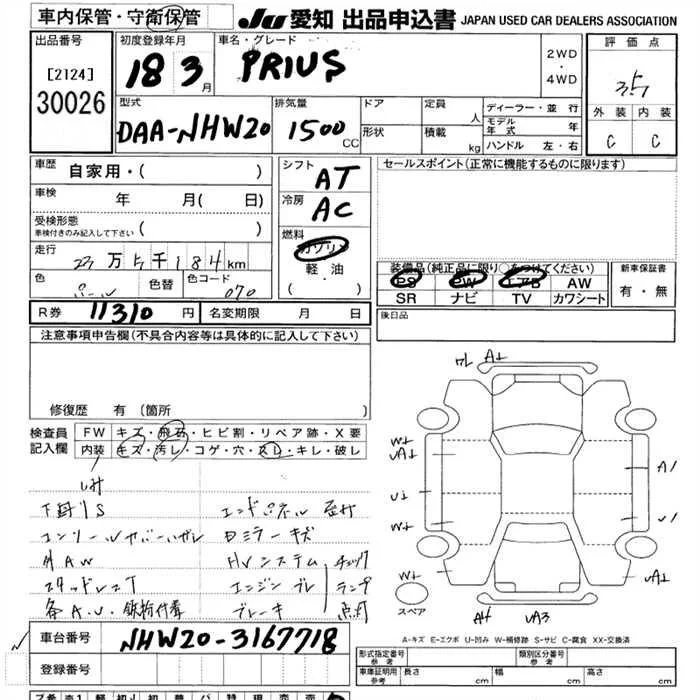 車内保管・守衛保管
JU 愛知 出品申込書 JAPAN USED CAR DEALERS ASSOCIATION
出品番号
[2124]
30026
初度登録年月
18 3月
車名・グレード
PRIUS
2WD
・
4WD
評価点
3.5
外装 内装
C C
型式
DAA-NHW20
排気量
1500 CC
ドア
形状
定員 人
積載 kg
ディーラー・並行
モデル年式 年
ハンドル 左・右
車歴 自家用・( )
車検 年 月( 日)
受検形態
車検付きのみ記入して下さい ( )
走行
23万5千184km
色 パール
色替
色コード 070
シフト AT
冷房 AC
燃料
ガソリン
軽・油
( ・ )
セールスポイント(正常に機能するものに限ります)
装備品(純正品に限り○をつけてください)
PS PW エアB AW
SR ナビ TV カワシート
新車保証書
有・無
後日品
R券 11310 円
名変期限 月 日
注意事項申告欄(不具合内容等は具体的に記入して下さい)
修復歴 有 (箇所 )
検査員記入欄
FW キズ・飛石・ヒビ割・リペア跡・X要
内装 キズ・汚レ・コゲ・穴・スレ・キレ・破レ
下廻りS
エンジンルームカバーハガレ
外AW
スタッドレスT
各A.U.鉄粉付着
ドミラーキズ
HVシステム チェック
エンジン ブレーキ ランプ点灯
A1
U1
UA1
UA3
スペア
車台番号 NHW20-3167718
登録番号
A-キズ E-エクボ U-凹み W-補修跡 S-サビ C-腐食 XX-交換済
形式指定番号 参考
類別区分番号 参考
車庫証明用 参考
長さ cm 幅 cm 高さ cm